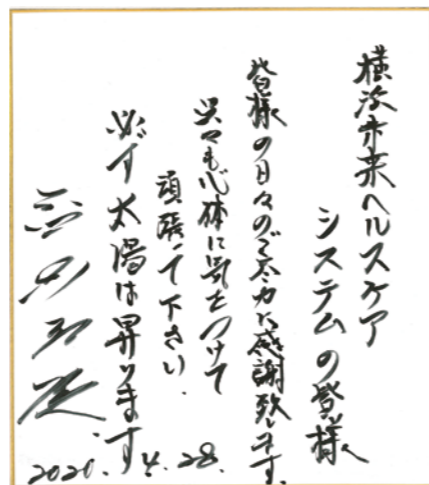 横浜未来ヘルスケア
システムの皆様へ
皆様の日々のご尽力に感謝致します。
呉々も心体に気をつけて
頑張って下さい.
必ず太陽は昇ります
2020. 4. 28.